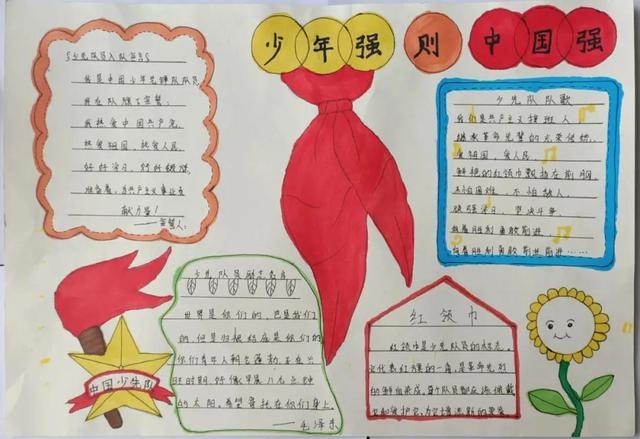 少年强则中国强
我是中国少年先锋队队员
我在队旗下宣誓
我热爱中国共产党
热爱祖国，热爱人民
好好学习，好好锻炼
准备着，为共产主义事业
献力量！
——宣誓人：
少先队队歌
我们是共产主义接班人
继承革命先辈的光荣传统，
爱祖国，爱人民
鲜艳的红领巾飘扬在前胸
不怕困难，不怕敌人
顽强学习，坚决斗争
向着胜利勇敢前进，
向着胜利勇敢前进前进……
少先队员励志名言
世界是你们的，也是我们
的，但是归根结底是你们的
你们青年人朝气蓬勃，正在兴
旺时期，好像早晨八九点钟
的太阳。希望寄托在你们身上。
——毛泽东
红领巾
红领巾是少先队员的标志，
它代表红旗的一角，是革命先烈
的鲜血染成，每个队员都应该佩戴
它和爱护它，为它增添新的荣誉
中国少先队